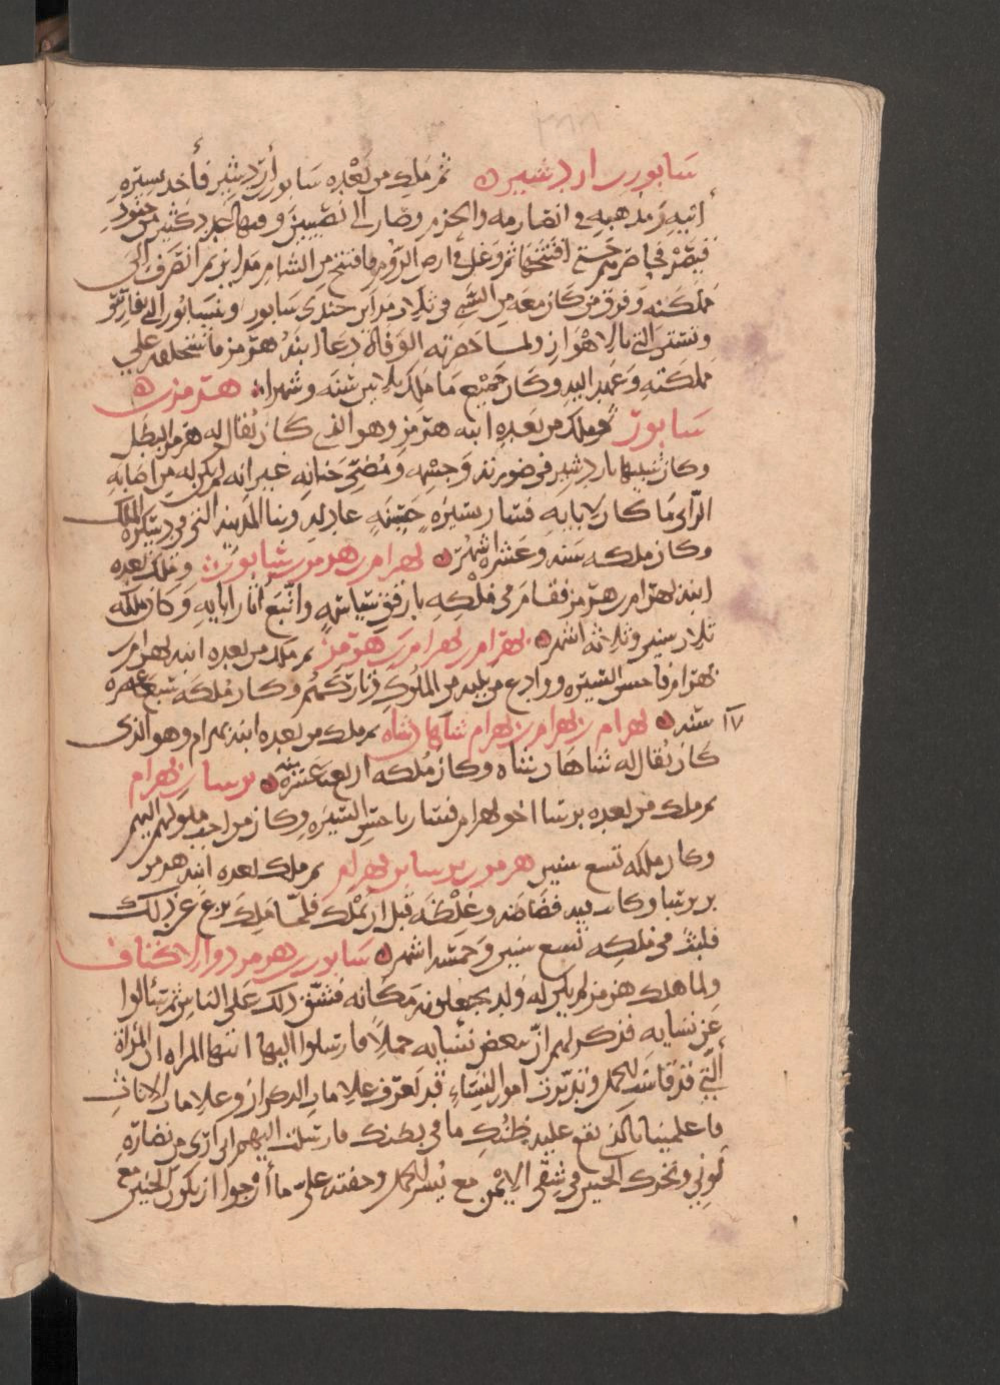 سابور بن اردشير ثم ملك من بعده سابور أردشير فأخذ بسيرة
أبيه ومذهبه في انصارمه والحزم وصار الى نصيبين وفيها عدد كثير من جنود
قيصر فحاصرهم حتى افتتحها ثم وغل في ارض الروم فافتتح من الشام مداين ثم انصرف الى
مملكته وفرق من كان معه من السبي في ثلاث مداين جندي سابور وبسابور التي بفارس
وتستر التي بالاهواز ولما حضرته الوفاة دعا ابنه هرمز فاستخلفه على
مملكته وعهد اليه وكان جميع ما ملك ثلاثين سنه وشهرا هرمز بن
سابور ثم ملك من بعده ابنه هرمز وهو الذي كان يقال له هرمز البطل
وكان شبيها باردشير في صورته وجسمه ومضى جنانه غير انه لم يكن له من اصابه
الراي ما كان لابايه فسار سيرة حسنه عادله وبنا المدينه التي في دسكرة الملك
وكان ملكه سنه وعشرة اشهر بهرام بن هرمز بن سابور وملك بعده
ابنه بهرام بن هرمز فقام في ملكه بارفق سياسه واتبع اثار ابايه وكان ملكه
ثلاث سنين وثلاثه اشهر بهرام بن بهرام بن هرمز ثم ملك من بعده ابنه بهرام بن
بهرام فاحسن السيره ووادع من يليه من الملوك وتاركهم وكان ملكه سبع عشرة
١٧ سنه بهرام بن بهرام بن بهرام شاهان شاه ثم ملك من بعده ابنه بهرام وهو الذي
كان يقال له شاهان شاه وكان ملكه اربع عشرة سنه نرسا بن بهرام
ثم ملك من بعده نرسا اخو بهرام فسار باحسن السيره وكان من احب ملوكهم اليهم
وكان ملكه تسع سنين هرمز بن نرسا بن بهرام ثم ملك بعده ابنه هرمز
بن نرسا وكانت فيه فضاضه وغلظه قبل ان يملك فلما ملك نزع عن ذلك
فلبث في ملكه تسع سنين وخمسه اشهر سابور بن هرمز ذو الاكتاف
ولما هلك هرمز لم يكن له ولد يجعلونه مكانه فشق ذلك على الناس ثم سالوا
عن نسايه فذكر لهم ان بعض نسايه حملا فارسلوا اليها ايتها المراه ان المرأة
التي قد قاست الحمل وتدبرت امور النساء قد تعرف علامات الذكران وعلامات الاناث
فاعلمينا بالذي يقع عليه ظنك ما في بطنك فارسلت اليهم اني ارى من نضارة
لوني وتحرك الجنين في شقي الايمن مع يسر الحمل وخفته علي ما أرجوا ان يكون الجنين معه